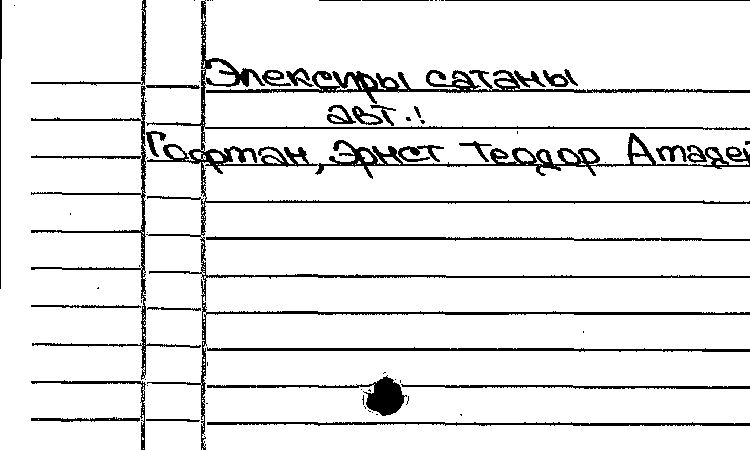 Элексиры сатаны
авт.:
Гофман, Эрнст Теодор Амадей